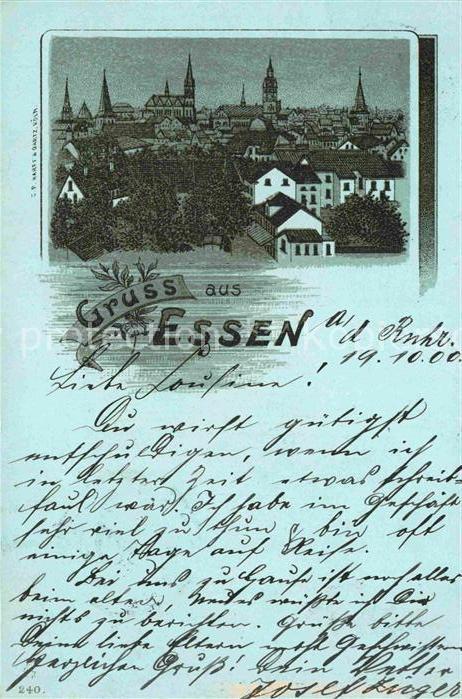 Gruss aus
ESSEN a/d Ruhr.
19.10.00.
Liebe Cousine!
Du wirst gütigst
entschuldigen, wenn ich
in letzter Zeit etwas schreib-
faul war. Ich habe im Geschäft
sehr viel zu thun & bin oft
einige Tage auf Reise.
Bei uns zu Hause ist noch alles
beim alten, neues wüßte ich Dir
nichts zu berichten. Grüße bitte
Deine liebe Eltern nebst Geschwistern
herzlichen Gruß! Dein Vetter
Josef
240.